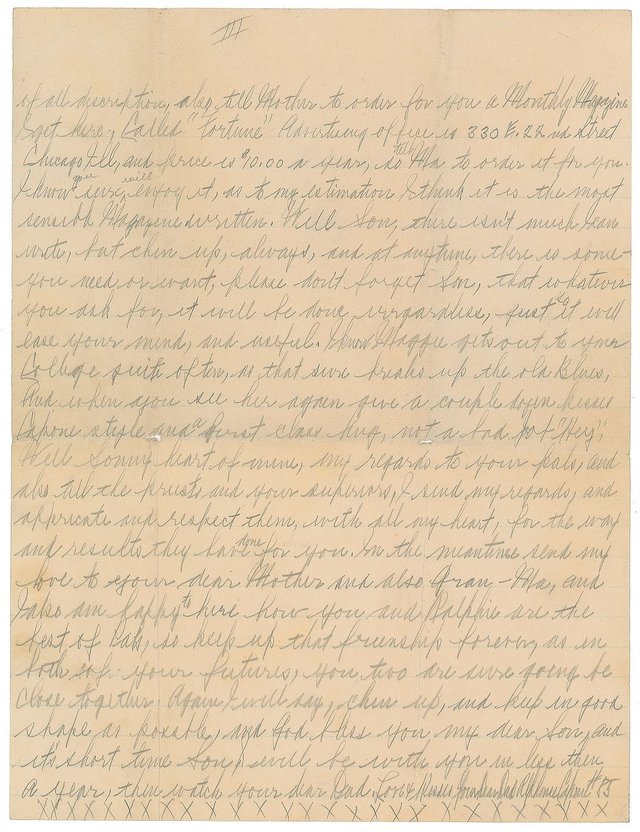 III
of all description, also tell Mother to order for you a Monthly Magazine
I get here, Called "Fortune" Advertising office is 330 E. 22nd Street
Chicago Ill, and price is $10.00 a year, so tell Ma to order it for you.
I know you sure, will enjoy it, as to my estimation I think it is the most
sensible Magazine written. Well Son, there isn't much I can
write, but chin up, always, and at anytime, there is some-
you need, or want, please don't forget Son, that whatever
you ask for, it will be done, irregardless, just so it will
ease your mind, and useful. I know Maggie gets out to your
College quite often, as that sure breaks up the old Blues,
And when you see her again give a couple dozen kisses
Capone style and a first class hug, not a bad "Hey",
Well Sonny heart of mine, my regards to your pals, and
also tell the priests and your superiors, I send my regards, and
appricate and respect them, with all my heart, for the way
and results they have done for you. In the meantime send my
love to your dear Mother and also Gran-Ma, and
I also am happy to here how you and Ralphie are the
best of Pals, so keep up that frienship forever, as in
both of your futures, you two are sure going be
close together. Again I will say, chin up, and keep in good
shape as possble, and God bless you my dear Son, and
it's short time Son, I will be with you in less then
a year, then watch your dear Dad. Love & Kisses Your Dear Dad Alphonse Capone # 85
X X X X X X X X X X X X X X X X X X X X X X X X X X X